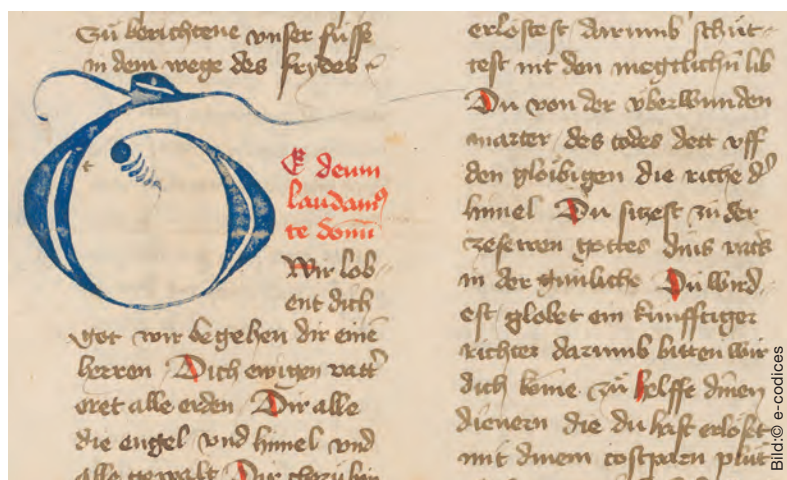 Zů berichtene vnser fůsse
in dem wege des frydes
T
E deum
laudamꝰ
te domī
Wir lob
ent dich
got wir begehen dir eine
herren Dich ewigen vatt
eret alle erden Dir alle
die engel vnd himel vnd
alle gewalt Dir cherubin
erlostest darumb schut
test nit den megtlichen lib
Du von der vberwunden
marter des todes dett vff
den glöibigen die riche d
himel Du sitzest zu der
zesewen gottes dins vatt
in der günliche Du wird
est globet ein kunfftiger
richter darumb bitten wir
dich kome zů helffe dinen
dienern die du hast erlöset
mit dinem costparn plůt
Bild:© e-codices